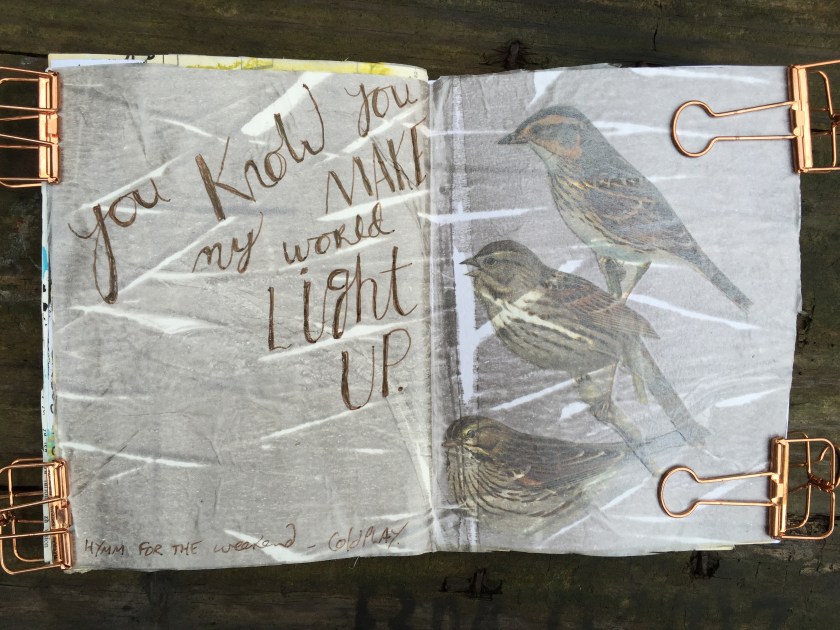 you know you
MAKE
my world
Light
UP.
HYMN FOR THE weekend - ColdPLAY.